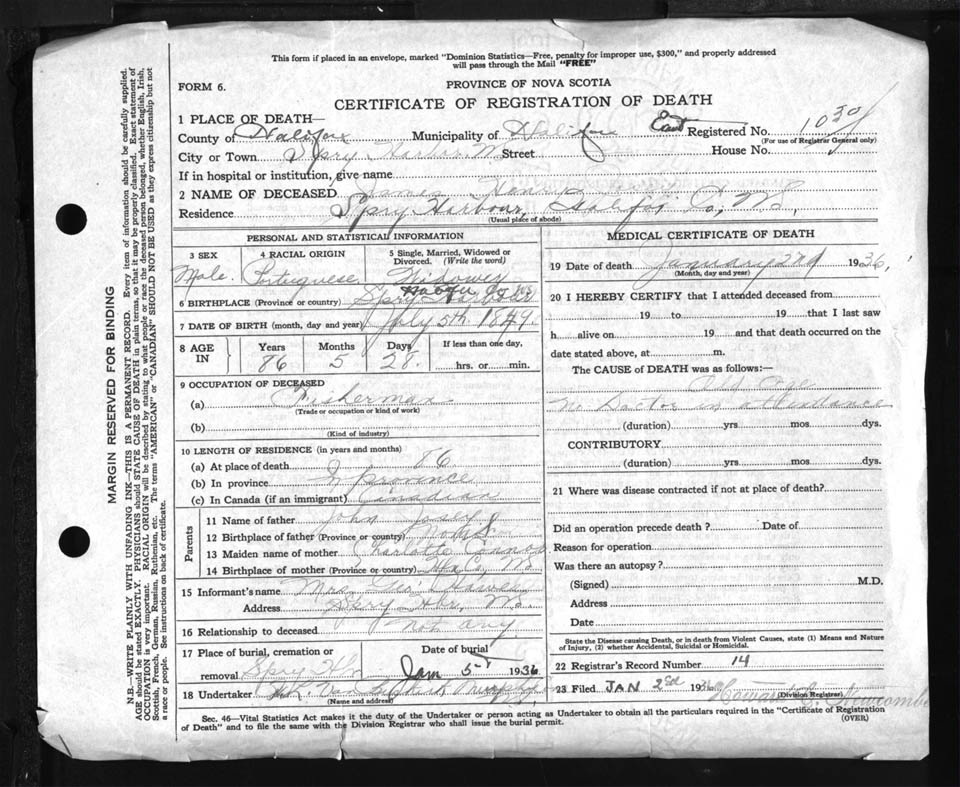 This form if placed in an envelope, marked "Dominion Statistics—Free, penalty for improper use, $300," and properly addressed
will pass through the Mail "FREE"
FORM 6.
PROVINCE OF NOVA SCOTIA
CERTIFICATE OF REGISTRATION OF DEATH
1 PLACE OF DEATH—
County of Halifax Municipality of Halifax East Registered No. 1030
(For use of Registrar General only)
City or Town Spry Harbour Street House No.
If in hospital or institution, give name
2 NAME OF DECEASED James Henry
Residence Spry Harbour, Halifax Co, N.S.
(Usual place of abode)
PERSONAL AND STATISTICAL INFORMATION
3 SEX 4 RACIAL ORIGIN 5 Single, Married, Widowed or
Divorced. (Write the word)
Male. Portuguese Widower
6 BIRTHPLACE (Province or country) Spry Harbour
7 DATE OF BIRTH (month, day and year) July 5th 1849.
8 AGE IN Years Months Days If less than one day,
86 5 28. hrs. or min.
9 OCCUPATION OF DECEASED
(a) Fisherman
(Trade or occupation or kind of work)
(b)
(Kind of industry)
10 LENGTH OF RESIDENCE (in years and months)
(a) At place of death 86
(b) In province In province
(c) In Canada (if an immigrant) Canadian
Parents
11 Name of father John
12 Birthplace of father (Province or country)
13 Maiden name of mother Charlotte
14 Birthplace of mother (Province or country) Hx Co, N.S.
15 Informant's name Mrs. Geo.
Address Spry Hbr, N.S.
16 Relationship to deceased not any
17 Place of burial, cremation or Date of burial
removal Spry Hbr Jan 5th 1936
18 Undertaker
(Name and address)
MEDICAL CERTIFICATE OF DEATH
19 Date of death January 2nd 1936,
(Month, day and year)
20 I HEREBY CERTIFY that I attended deceased from
19 to 19 that I last saw
h alive on 19 and that death occurred on the
date stated above, at m.
The CAUSE of DEATH was as follows:—
Old Age
No Doctor in attendance
(duration) yrs. mos. dys.
CONTRIBUTORY
(duration) yrs. mos. dys.
21 Where was disease contracted if not at place of death?
Did an operation precede death? Date of
Reason for operation
Was there an autopsy?
(Signed) M.D.
Address
Date
State the Disease causing Death, or in death from Violent Causes, state (1) Means and Nature
of Injury, (2) whether Accidental, Suicidal or Homicidal.
22 Registrar's Record Number 14
23 Filed JAN 2nd 193 Newcombe
(Division Registrar)
Sec. 46—Vital Statistics Act makes it the duty of the Undertaker or person acting as Undertaker to obtain all the particulars required in the "Certificate of Registration
of Death" and to file the same with the Division Registrar who shall issue the burial permit. (OVER)
MARGIN RESERVED FOR BINDING
N.B.—WRITE PLAINLY WITH UNFADING INK—THIS IS A PERMANENT RECORD. Every item of information should be carefully supplied.
AGE should be stated EXACTLY. PHYSICIANS should STATE CAUSE OF DEATH in plain terms, so that it may be properly classified. Exact statement of
OCCUPATION is very important. RACIAL ORIGIN will be described by stating to what people or race the deceased person belonged, whether English, Irish,
Scottish, French, German, Russian, Ruthenian, etc. The terms "AMERICAN" or "CANADIAN" SHOULD NOT BE USED as they express citizenship but not
a race or people. See instructions on back of certificate.